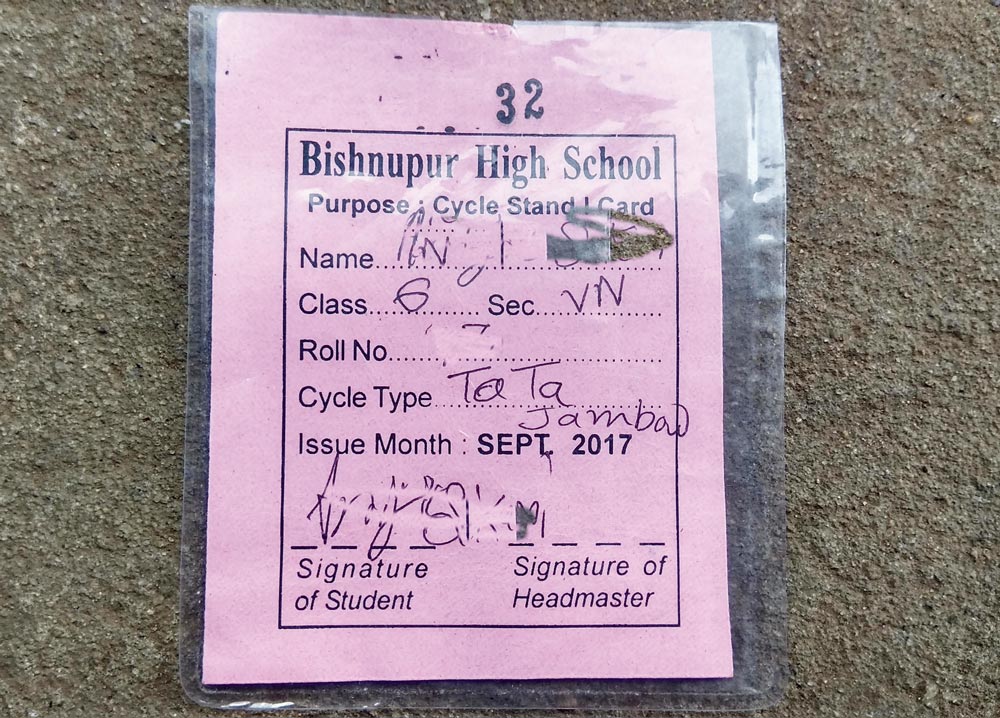 32
Bishnupur High School
Purpose : Cycle Stand I Card
Name
Class 6 Sec VN
Roll No
Cycle Type TaTa
Jambao
Issue Month : SEPT. 2017
Signature Signature of
of Student Headmaster